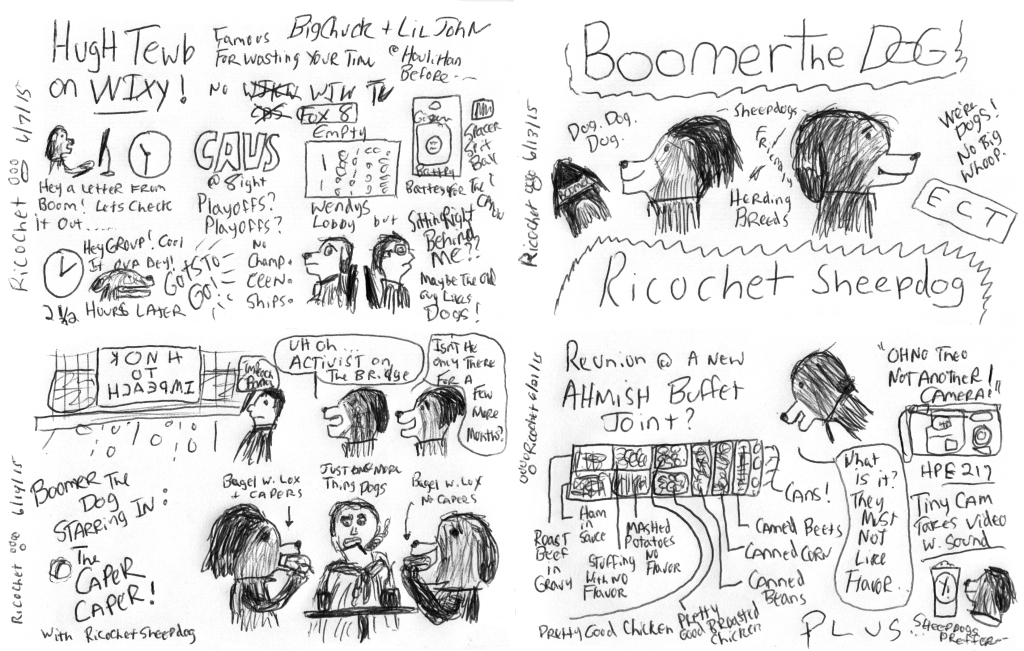 HUGH TEWB
on WIXY!
FAMOUS
FOR WASTING YOUR TIME
BIG CHUCK + LIL JOHN
@ HOULIHAN
BEFORE--
NO WJKW WJW TV
CBS FOX 8
RICOCHET 6/7/15
HEY A LETTER FROM
BOOM! LETS CHECK
IT OUT.....
CAVS
@ 8ight
PLAYOFFS?
PLAYOFFS?
NO
CHAMP.
EEEN.
SHIPS.
EMPTY
WENDYS
LOBBY but
SITTING RIGHT
BEHIND
ME??
MAYBE THE OLD
GUY LIKES
DOGS!
SPACER
HEY GROUP! COOL
GOTS TO
GO!
2 1/2 HOURS LATER
BOOMER THE DOG
RICOCHET 6/13/15
DOG. DOG.
DOG.
SHEEPDOGS
HERDING
BREEDS
WE'RE
DOGS!
NO BIG
WHOOP.
ECT
RICOCHET SHEEPDOG
HONK
TO
IMPEACH
UH OH...
ACTIVIST ON
THE BRIDGE
ISN'T HE
ONLY THERE
FOR A
FEW
MORE
MONTHS?
RICOCHET 6/14/15
BOOMER THE
DOG
STARRING IN:
THE
CAPER
CAPER!
WITH RICOCHET SHEEPDOG
BAGEL W. LOX
+ CAPERS
JUST ONE MORE
THING DOGS
BAGEL W. LOX
NO CAPERS
RICOCHET 6/21/15
REUNION @ A NEW
AHMISH BUFFET
JOINT?
CANS!
ROAST
BEEF
IN
GRAVY
HAM
IN
SAUCE
STUFFING
WITH NO
FLAVOR
MASHED
POTATOES
NO
FLAVOR
CANNED BEETS
CANNED CORN
CANNED
BEANS
PRETTY GOOD CHICKEN
PRETTY
GOOD BROASTED
CHICKEN
WHAT
IS IT?
THEY
MUST
NOT
LIKE
FLAVOR.
"OH NO THEO
NOT ANOTHER!
CAMERA!"
HPE 217
TINY CAM
TAKES VIDEO
W. SOUND
PLUS
...SHEEPDOGS
PREFFER--